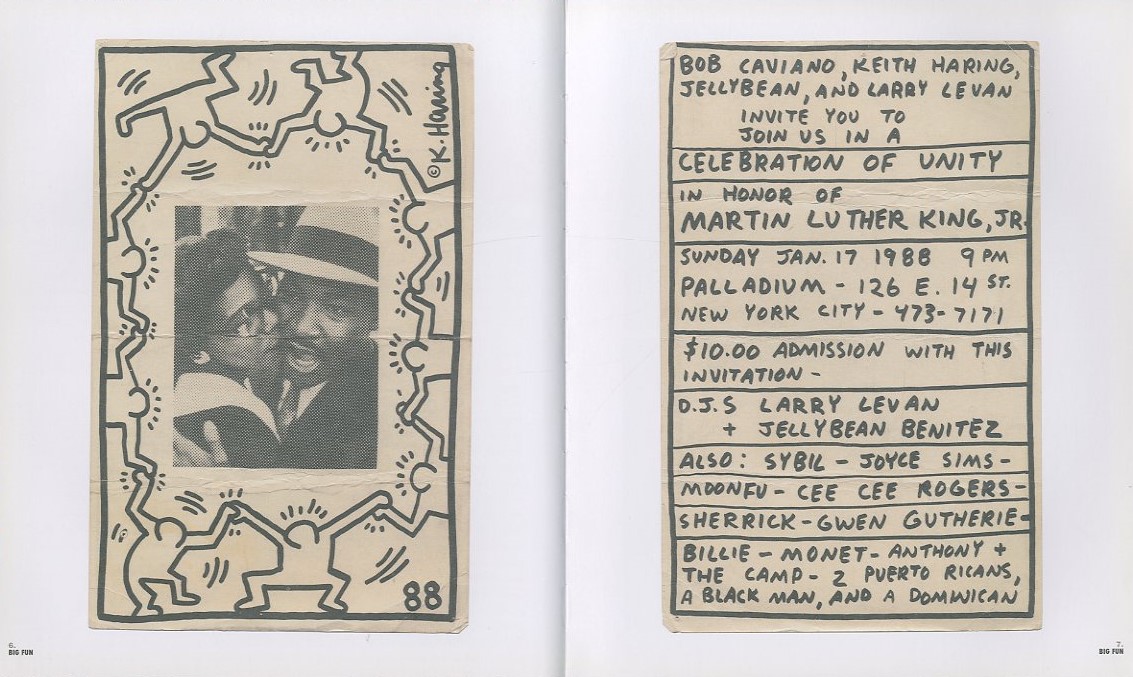 © K. Haring
88
6.
BIG FUN
BOB CAVIANO, KEITH HARING,
JELLYBEAN, AND LARRY LEVAN
INVITE YOU TO
JOIN US IN A
CELEBRATION OF UNITY
IN HONOR OF
MARTIN LUTHER KING, JR.
SUNDAY JAN. 17 1988 9 PM
PALLADIUM - 126 E. 14 ST.
NEW YORK CITY - 473-7171
$10.00 ADMISSION WITH THIS
INVITATION -
D.J.S LARRY LEVAN
+ JELLYBEAN BENITEZ
ALSO: SYBIL - JOYCE SIMS -
MOONFU - CEE CEE ROGERS -
SHERRICK - GWEN GUTHERIE -
BILLIE - MONET - ANTHONY +
THE CAMP - 2 PUERTO RICANS,
A BLACK MAN, AND A DOMINICAN
7.
BIG FUN